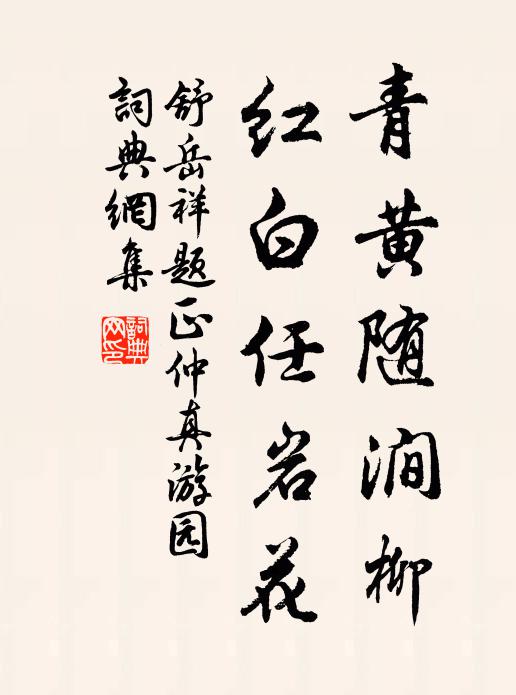 青黄随涧柳
红白任岩花
舒岳祥题正仲真游园
詞典網集
詞典网印